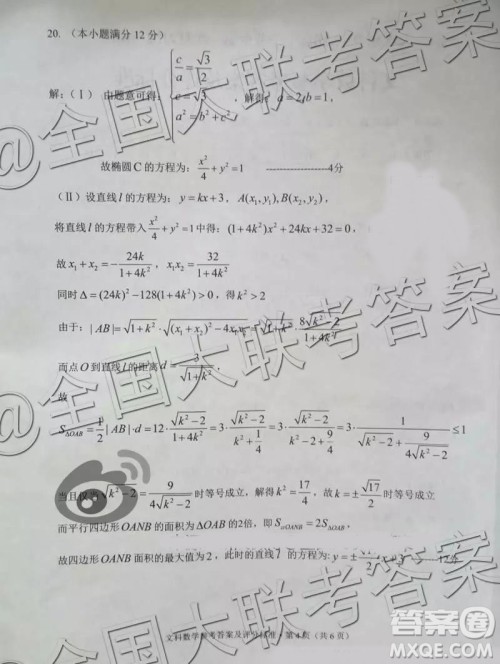 20. （本小题满分12分）
解：（Ⅰ） 由题意可得：{ c/a = √3/2, c = √3, a² = b² + c² ，解得：a = 2, b = 1，
故椭圆C的方程为：x²/4 + y² = 1 ----------------4分
（Ⅱ）设直线l的方程为：y = kx + 3，A(x₁, y₁), B(x₂, y₂)，
将直线l的方程带入 x²/4 + y² = 1 中得：(1+4k²)x² + 24kx + 32 = 0，
故 x₁ + x₂ = -24k/(1+4k²)，x₁x₂ = 32/(1+4k²)
同时 Δ = (24k)² - 128(1+4k²) > 0，得 k² > 2
由于：|AB| = √(1+k²) · √((x₁+x₂)² - 4x₁x₂) = √(1+k²) · 8√(k²-2)/(1+4k²)
而点O到直线l的距离 d = 3/√(1+k²)，
故
S_ΔOAB = 1/2 |AB|·d = 12·√(k²-2)/(1+4k²) = 3·√(k²-2)/(k²+1/4) = 3·√(k²-2)/(k²-2+9/4) = 3·1/(√(k²-2) + 9/(4√(k²-2))) ≤ 1
当且仅当 √(k²-2) = 9/(4√(k²-2)) 时等号成立，解得 k² = 17/4，故 k = ±√17/2 时等号成立，
而平行四边形OANB的面积为ΔOAB的2倍，即 S▱OANB = 2S_ΔOAB，
故四边形OANB面积的最大值为2，此时的直线l的方程为：y = ± x + 3 12分
文科数学参考答案及评分标准·第4页（共6页）
@全国大联考答案
@全国大联考答案
答案圈
MXQE.COM